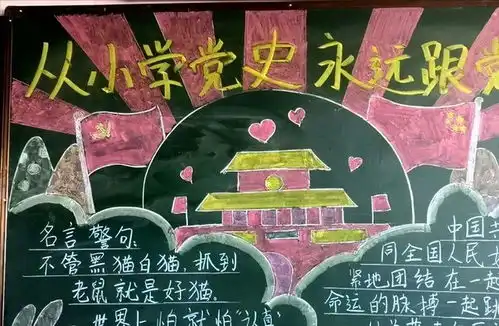 从小学党史 永远跟党
名言警句
不管黑猫白猫，抓到
老鼠就是好猫。
世界上怕就怕“认真”
中国共
同全国人民
紧地团结在一起
命运的脉搏一起跳